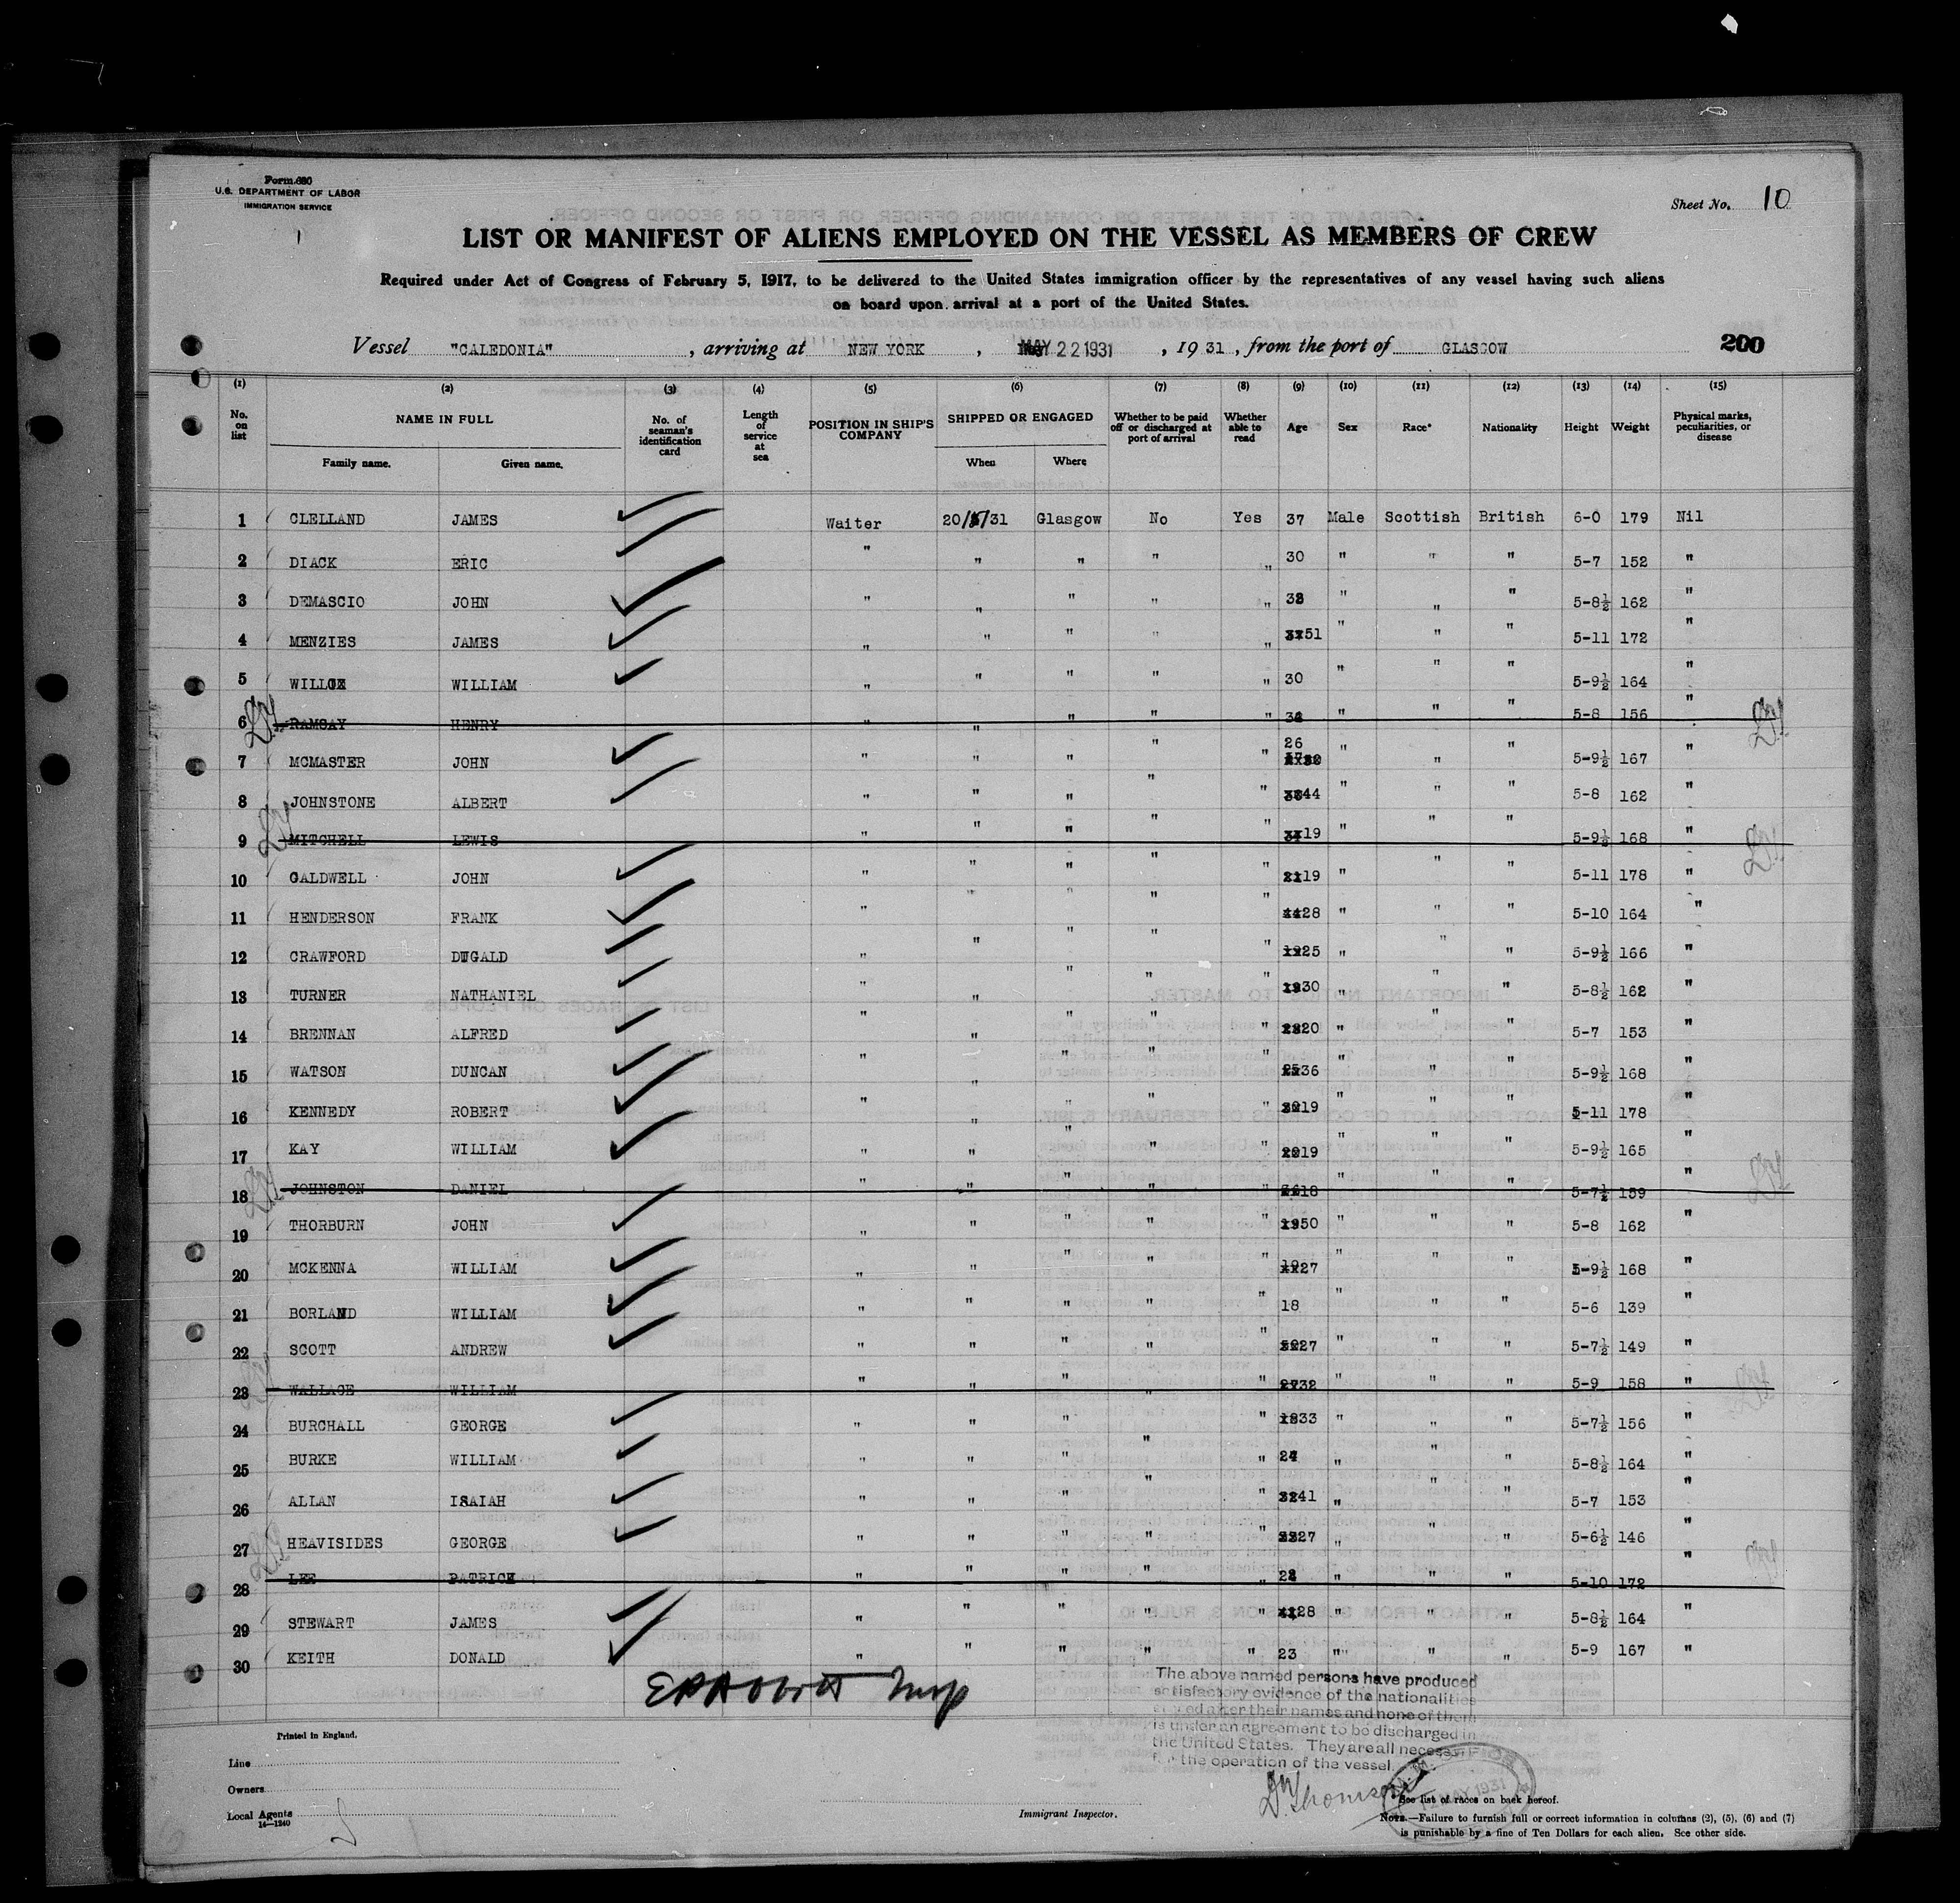 Form 680
U.S. DEPARTMENT OF LABOR
IMMIGRATION SERVICE
Sheet No. 10
LIST OR MANIFEST OF ALIENS EMPLOYED ON THE VESSEL AS MEMBERS OF CREW
Required under Act of Congress of February 5, 1917, to be delivered to the United States immigration officer by the representatives of any vessel having such aliens
on board upon arrival at a port of the United States.
Vessel "CALEDONIA", arriving at NEW YORK, MAY 22 1931, 1931, from the port of GLASGOW 200
(1) (2) (3) (4) (5) (6) (7) (8) (9) (10) (11) (12) (13) (14) (15)
No. on list NAME IN FULL Family name. Given name. No. of seaman's identification card Length of service at sea POSITION IN SHIP'S COMPANY SHIPPED OR ENGAGED When Where Whether to be paid off or discharged at port of arrival Whether able to read Age Sex Race* Nationality Height Weight Physical marks, peculiarities, or disease
1 CLELLAND JAMES Waiter 20/5/31 Glasgow No Yes 37 Male Scottish British 6-0 179 Nil
2 DIACK ERIC " " " " " 30 " " " 5-7 152 "
3 DEMASCIO JOHN " " " " " " " " 5-8½ 162 "
4 MENZIES JAMES " " " " " 51 " " " 5-11 172 "
5 WILLOX WILLIAM " " " " " 30 " " " 5-9½ 164 "
6 RAMSAY HENRY " " " " " " " " 5-8 156 "
7 MCMASTER JOHN " " " " " 26 " " " 5-9½ 167 "
8 JOHNSTONE ALBERT " " " " " 44 " " " 5-8 162 "
9 MITCHELL LEWIS " " " " " 19 " " " 5-9½ 168 "
10 CALDWELL JOHN " " " " " 19 " " " 5-11 178 "
11 HENDERSON FRANK " " " " " 28 " " " 5-10 164 "
12 CRAWFORD DUGALD " " " " " 25 " " " 5-9½ 166 "
13 TURNER NATHANIEL " " " " " 30 " " " 5-8½ 162 "
14 BRENNAN ALFRED " " " " " 20 " " " 5-7 153 "
15 WATSON DUNCAN " " " " " 36 " " " 5-9½ 168 "
16 KENNEDY ROBERT " " " " " 19 " " " 5-11 178 "
17 KAY WILLIAM " " " " " 19 " " " 5-9½ 165 "
18 JOHNSTON DANIEL " " " " " 18 " " " 5-7½ 159 "
19 THORBURN JOHN " " " " " 50 " " " 5-8 162 "
20 MCKENNA WILLIAM " " " " " 27 " " " 5-9½ 168 "
21 BORLAND WILLIAM " " " " " 18 " " " 5-6 139 "
22 SCOTT ANDREW " " " " " 27 " " " 5-7½ 149 "
23 WALLACE WILLIAM " " " " " 32 " " " 5-9 158 "
24 BURCHALL GEORGE " " " " " 33 " " " 5-7½ 156 "
25 BURKE WILLIAM " " " " " 24 " " " 5-8½ 164 "
26 ALLAN ISAIAH " " " " " 41 " " " 5-7 153 "
27 HEAVISIDES GEORGE " " " " " 27 " " " 5-6½ 146 "
28 LEE PATRICK " " " " " " " " 5-10 172 "
29 STEWART JAMES " " " " " 28 " " " 5-8½ 164 "
30 KEITH DONALD " " " " " 23 " " " 5-9 167 "
The above named persons have produced
satisfactory evidence of the nationalities
after their names and none of them
is under an agreement to be discharged in
the United States. They are all
for the operation of the vessel
Printed in England.
Line
Owners
Local Agents
14—1240
Immigrant Inspector.
Thomson
MAY 1931
*See list of races on back hereof.
NOTE.—Failure to furnish full or correct information in columns (2), (5), (6) and (7)
is punishable by a fine of Ten Dollars for each alien. See other side.